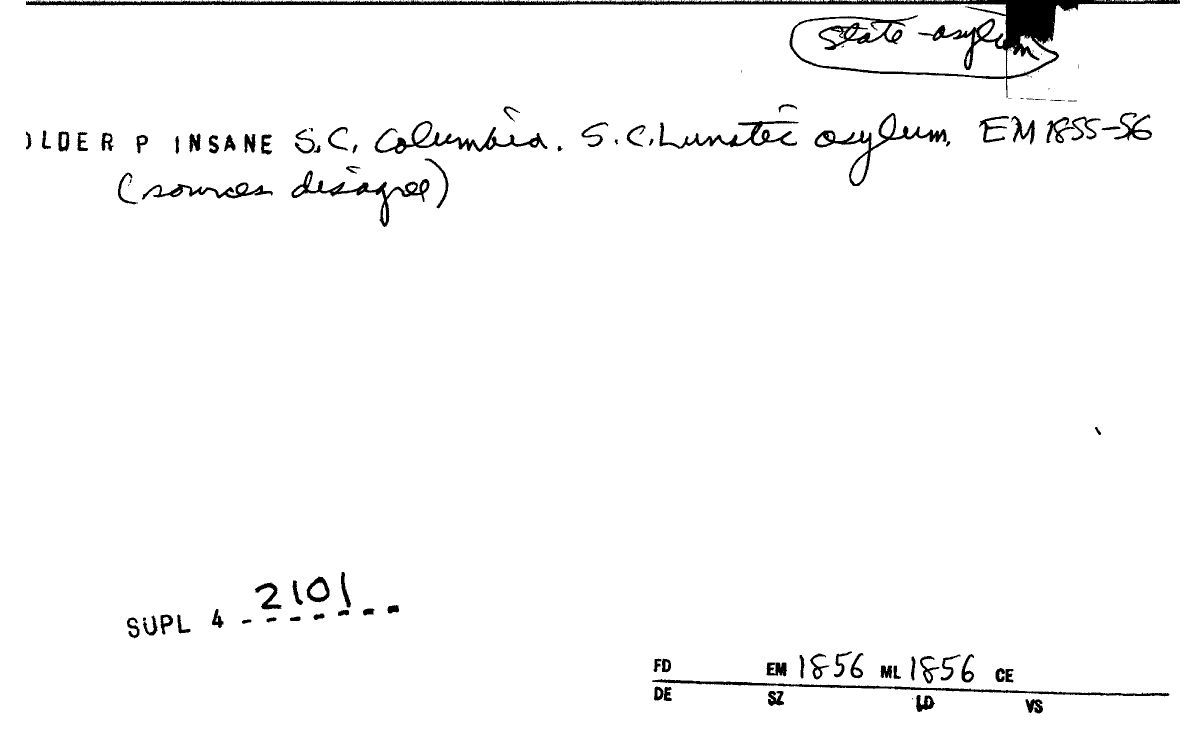 State asylum
OLDER P INSANE S.C. Columbia. S.C. Lunatic asylum. EM 1855-56
(sources disagree)
SUPL 4 2101
FD EM 1856 ML 1856 CE
DE SZ LD VS